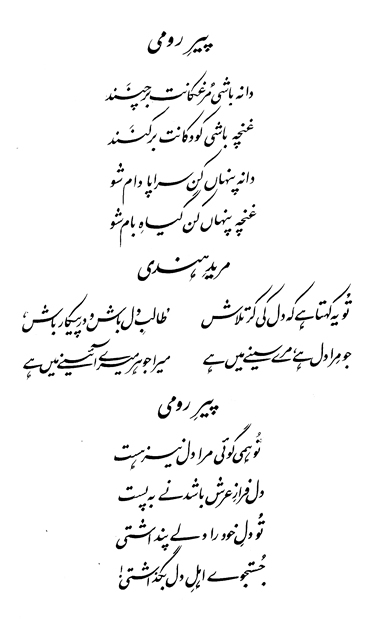 پیرِ رومی
دانہ باشی مُرغکانت برچنند
غنچہ باشی کودکانت برکنند
دانہ پنہاں کن سراپا دام شو
غنچہ پنہاں کن گیاہِ بام شو
مریدِ ہندی
تُو یہ کہتا ہے کہ دل کی کر تلاش طالبِ دل باش و در پیکار باش،
جو مرا دل ہے، مرے سینے میں ہے میرا جوہر میرے آئینے میں ہے
پیرِ رومی
تُو ہمی گوئی مرا دل نیز ہست
دل فرازِ عرش باشد نے بہ پست
تُو دلِ خود را دلے پنداشتی
جُستجوے اہلِ دل بگذاشتی!